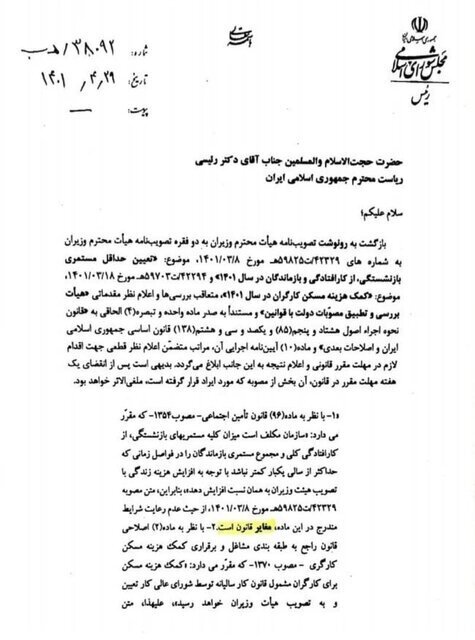 جمهوری اسلامی ایران
مجلس شورای اسلامی
رئیس
شماره: ۳۸۰۹۲/هـ ب
تاریخ: ۱۴۰۱/۴/۲۹
پیوست: ــ
حضرت حجت‌الاسلام والمسلمین جناب آقای دکتر رئیسی
ریاست محترم جمهوری اسلامی ایران
سلام علیکم؛
بازگشت به رونوشت تصویب‌نامه هیأت محترم وزیران به دو فقره تصویب‌نامه هیأت محترم وزیران
به شماره های ۴۲۳۲۹/ت۵۹۸۲۵هـ مورخ ۱۴۰۱/۰۳/۸، موضوع: «تعیین حداقل مستمری
بازنشستگی، از کارافتادگی و بازماندگان در سال ۱۴۰۱» و ۴۲۲۹۴/ت۵۹۷۰۳هـ مورخ ۱۴۰۱/۰۳/۱۸،
موضوع: «کمک هزینه مسکن کارگران در سال ۱۴۰۱»، متعاقب بررسی‌ها و اعلام نظر مقدماتی «هیأت
بررسی و تطبیق مصوّبات دولت با قوانین» و مستنداً به صدر ماده واحده و تبصره(۴) الحاقی به «قانون
نحوه اجراء اصول هشتاد و پنجم(۸۵) و یکصد و سی و هشتم(۱۳۸) قانون اساسی جمهوری اسلامی
ایران و اصلاحات بعدی» و ماده(۱۰) آیین‌نامه اجرایی آن، مراتب متضمّن اعلام نظر قطعی جهت اقدام
لازم در مهلت مقرر قانونی و اعلام نتیجه به این جانب ابلاغ می‌گردد. بدیهی است پس از انقضای یک
هفته مهلت مقرر در قانون، آن بخش از مصوبه که مورد ایراد قرار گرفته است، ملغی‌الاثر خواهد بود.
«۱- با نظر به ماده(۹۶) قانون تأمین اجتماعی-مصوب۱۳۵۴- که مقرّر
می دارد: «سازمان مکلف است میزان کلیه مستمریهای بازنشستگی، از
کارافتادگی کلی و مجموع مستمری بازماندگان را در فواصل زمانی که
حداکثر از سالی یکبار کمتر نباشد با توجه به افزایش هزینه زندگی با
تصویب هیئت وزیران به همان نسبت افزایش دهد»، بنابراین، متن مصوبه
۴۲۳۲۹/ت۵۹۸۲۵هـ مورخ ۱۴۰۱/۰۳/۸، از حیث عدم رعایت شرایط
مندرج در این ماده، مغایر قانون است. ۲- با نظر به ماده(۲) اصلاحی
قانون راجع به طبقه بندی مشاغل و برقراری کمک هزینه مسکن
کارگری - مصوب ۱۳۷۰- که مقرّر می دارد: «کمک هزینه مسکن
برای کارگران مشمول قانون کار سالیانه توسط شورای عالی کار تعیین
و به تصویب هیأت وزیران خواهد رسید»، علیهذا، متن